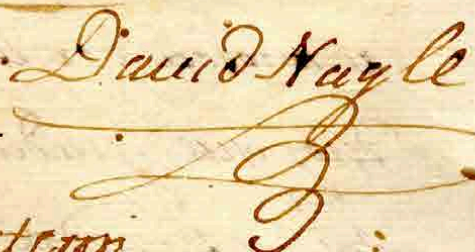 David Nagle